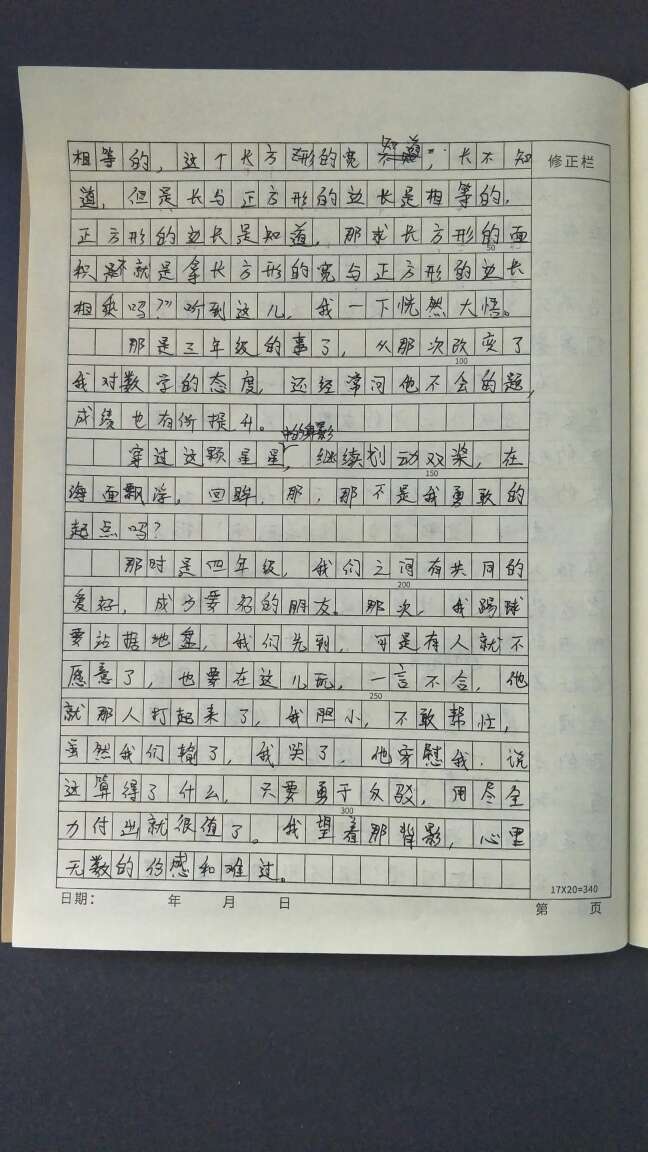 相等的，这个长方形的宽知道，长不知
修正栏
道，但是长与正方形的边长是相等的，
正方形的边长是知道，那求长方形的面
50
积是不就是拿长方形的宽与正方形的边长
相乘吗？”听到这儿，我一下恍然大悟。
那是三年级的事了，从那次改变了
100
我对数学的态度，还经常问他不会的题，
成绩也有所提升。
中的身影
穿过这颗星星，继续划动双桨，在
150
海面飘浮。回眸，那，那不是我勇敢的
起点吗？
那时是四年级，我们之间有共同的
200
爱好，成为要好的朋友。那次，我踢球
要站据地盘，我们先到，可是有人就不
愿意了，也要在这儿玩，一言不合，他
250
就那人打起来了，我胆小，不敢帮忙，
虽然我们输了，我哭了，他安慰我，说
这算得了什么，只要勇于反驳，用尽全
300
力付出就很值了。我望着那背影，心里
无数的伤感和难过。
17X20=340
日期： 年 月 日
第 页